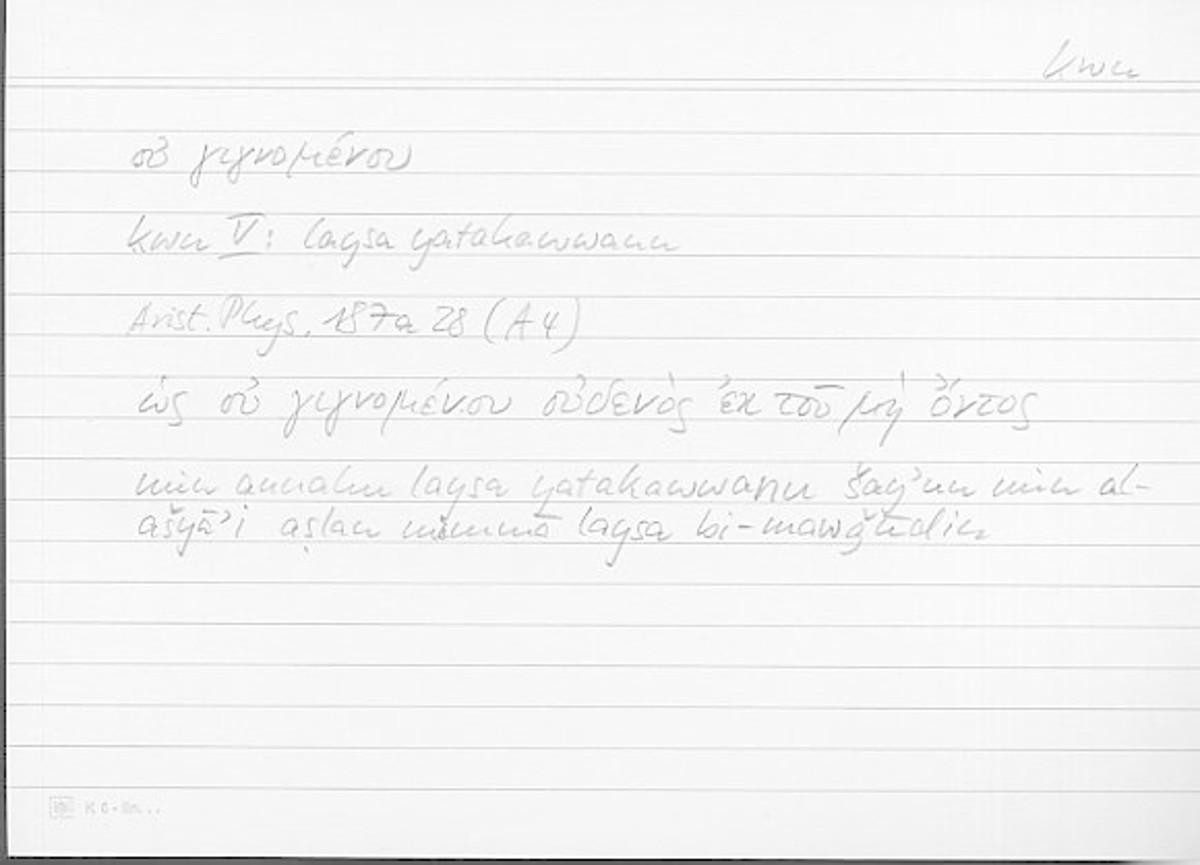 kwn
οὐ γιγνομένου
kwn V: laysa yatakawwanu
Arist. Phys. 187a 28 (A 4)
ὡς οὐ γιγνομένου οὐδενὸς ἐκ τοῦ μὴ ὄντος
min annahu laysa yatakawwanu šayʾun min al-
ašyāʾi aṣlan mimmā laysa bi-mawǧūdin